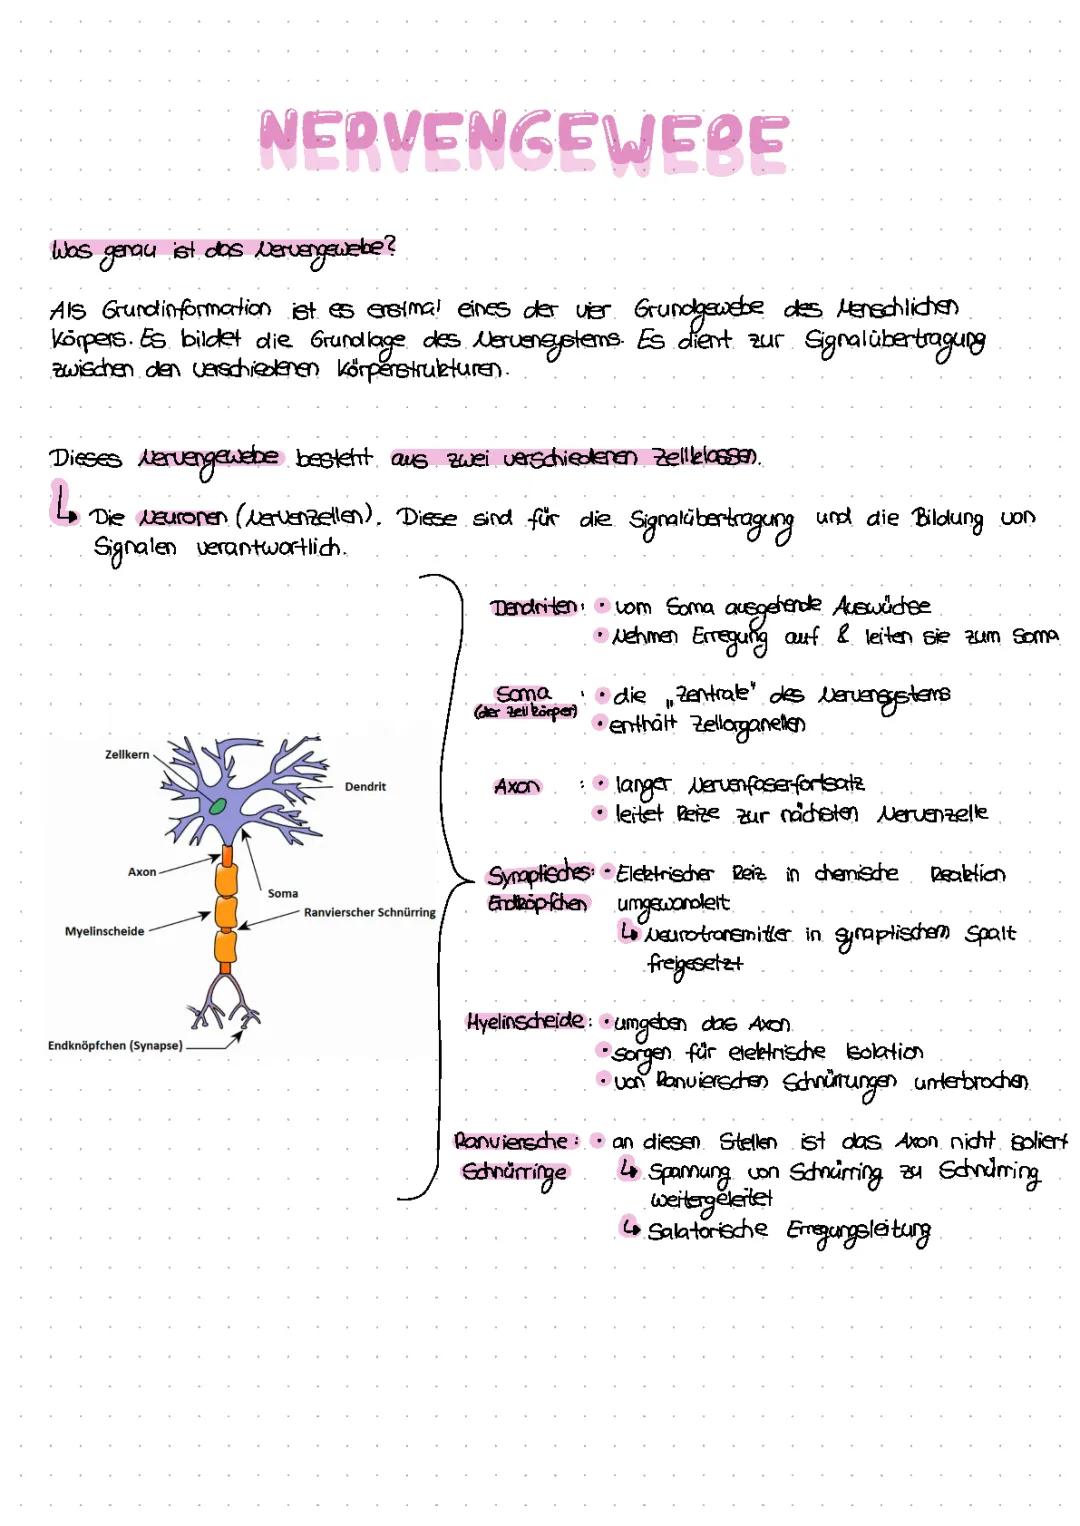 NERVENGEWEBE
Was genau ist das Nervengewebe?
Als Grundinformation ist es erstmal eines der vier Grundgewebe des Menschlichen
Körpers. Es bildet die Grundlage des Nervensystems. Es dient zur Signalübertragung
zwischen den verschiedenen Körperstrukturen.
Dieses Nervengewebe besteht aus zwei verschiedenen Zellklassen.
↳ Die Neuronen (Nervenzellen). Diese sind für die Signalübertragung und die Bildung von
Signalen verantwortlich.
Zellkern
Dendrit
Axon
Soma
Ranvierscher Schnürring
Myelinscheide
Endknöpfchen (Synapse)
Dendriten: • vom Soma ausgehende Auswüchse
• Nehmen Erregung auf & leiten sie zum Soma
Soma : • die „Zentrale" des Nervensystems
(der Zellkörper) • enthält Zellorganellen
Axon : • langer Nervenfaserfortsatz
• leitet Reize zur nächsten Nervenzelle
Synaptisches: • Elektrischer Reiz in chemische Reaktion
Endköpfchen umgewandelt
↳ Neurotransmitter in synaptischem Spalt
freigesetzt
Myelinscheide: • umgeben das Axon
• sorgen für elektrische Isolation
• von Ranvierschen Schnürrungen unterbrochen
Ranviersche : • an diesen Stellen ist das Axon nicht isoliert
Schnürringe ↳ Spannung von Schnürring zu Schnürring
weitergeleitet
↳ Salatorische Erregungsleitung